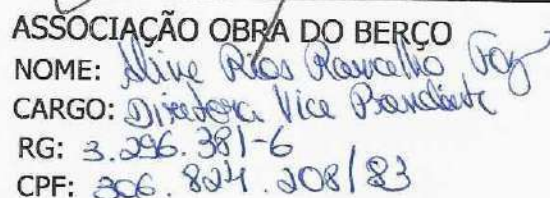 ASSOCIAÇÃO OBRA DO BERÇO
NOME: Aline Rios Ramalho Foz
CARGO: Diretora Vice Presidente
RG: 3.296.381-6
CPF: 306.824.208/83